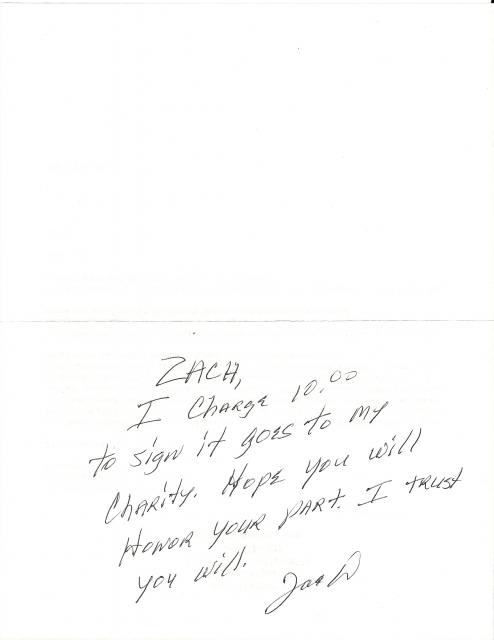 ZACH,
I CHARGE 10.00
to sign it goes to my
CHARITY. Hope you will
Honor your part. I trust
you will.